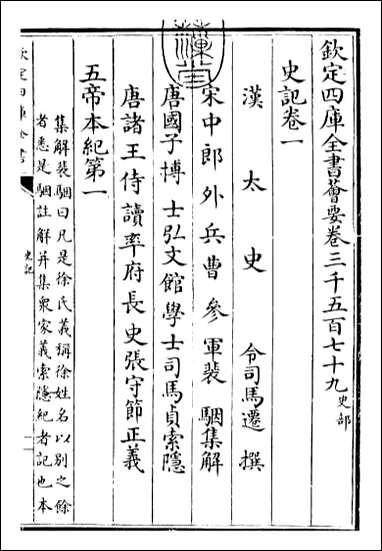 欽定四庫全書薈要卷三千五百七十九 史部
史記卷一
漢太史令司馬遷撰
宋中郎外兵曹參軍裴駰集解
唐國子博士弘文館學士司馬貞索隱
唐諸王侍讀率府長史張守節正義
五帝本紀第一
集解裴駰曰凡是徐氏義稱徐姓名以別之餘
者悉是駰註解并集衆家義索隱紀者記也本
欽定四庫全書
史記